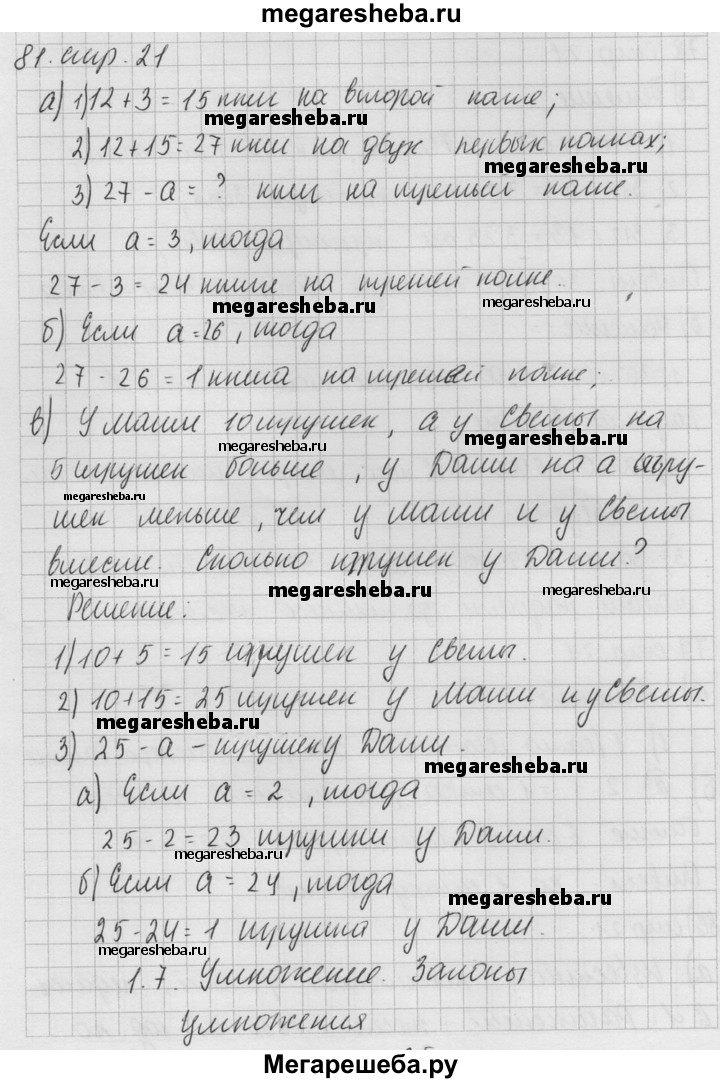 megaresheba.ru
81. стр. 21
а) 1) 12 + 3 = 15 книг на второй полке;
megaresheba.ru
2) 12 + 15 = 27 книг на двух первых полках;
megaresheba.ru
3) 27 - а = ? книг на третьей полке.
Если а = 3, тогда
27 - 3 = 24 книги на третей полке.
megaresheba.ru megaresheba.ru
б) Если а = 26, тогда
27 - 26 = 1 книга на третьей полке;
в) У Маши 10 игрушек, а у Светы на
megaresheba.ru megaresheba.ru
5 игрушек больше, у Даши на а игру-
megaresheba.ru
шек меньше, чем у Маши и у Светы
вместе. Сколько игрушек у Даши?
megaresheba.ru megaresheba.ru megaresheba.ru
Решение:
1) 10 + 5 = 15 игрушек у Светы.
2) 10 + 15 = 25 игрушек у Маши и у Светы.
megaresheba.ru
3) 25 - а - игрушек у Даши.
megaresheba.ru
а) Если а = 2, тогда
25 - 2 = 23 игрушки у Даши.
megaresheba.ru
б) Если а = 24, тогда
megaresheba.ru
25 - 24 = 1 игрушка у Даши.
megaresheba.ru
1.7. Умножение. Законы
умножения
Мегарешеба.ру